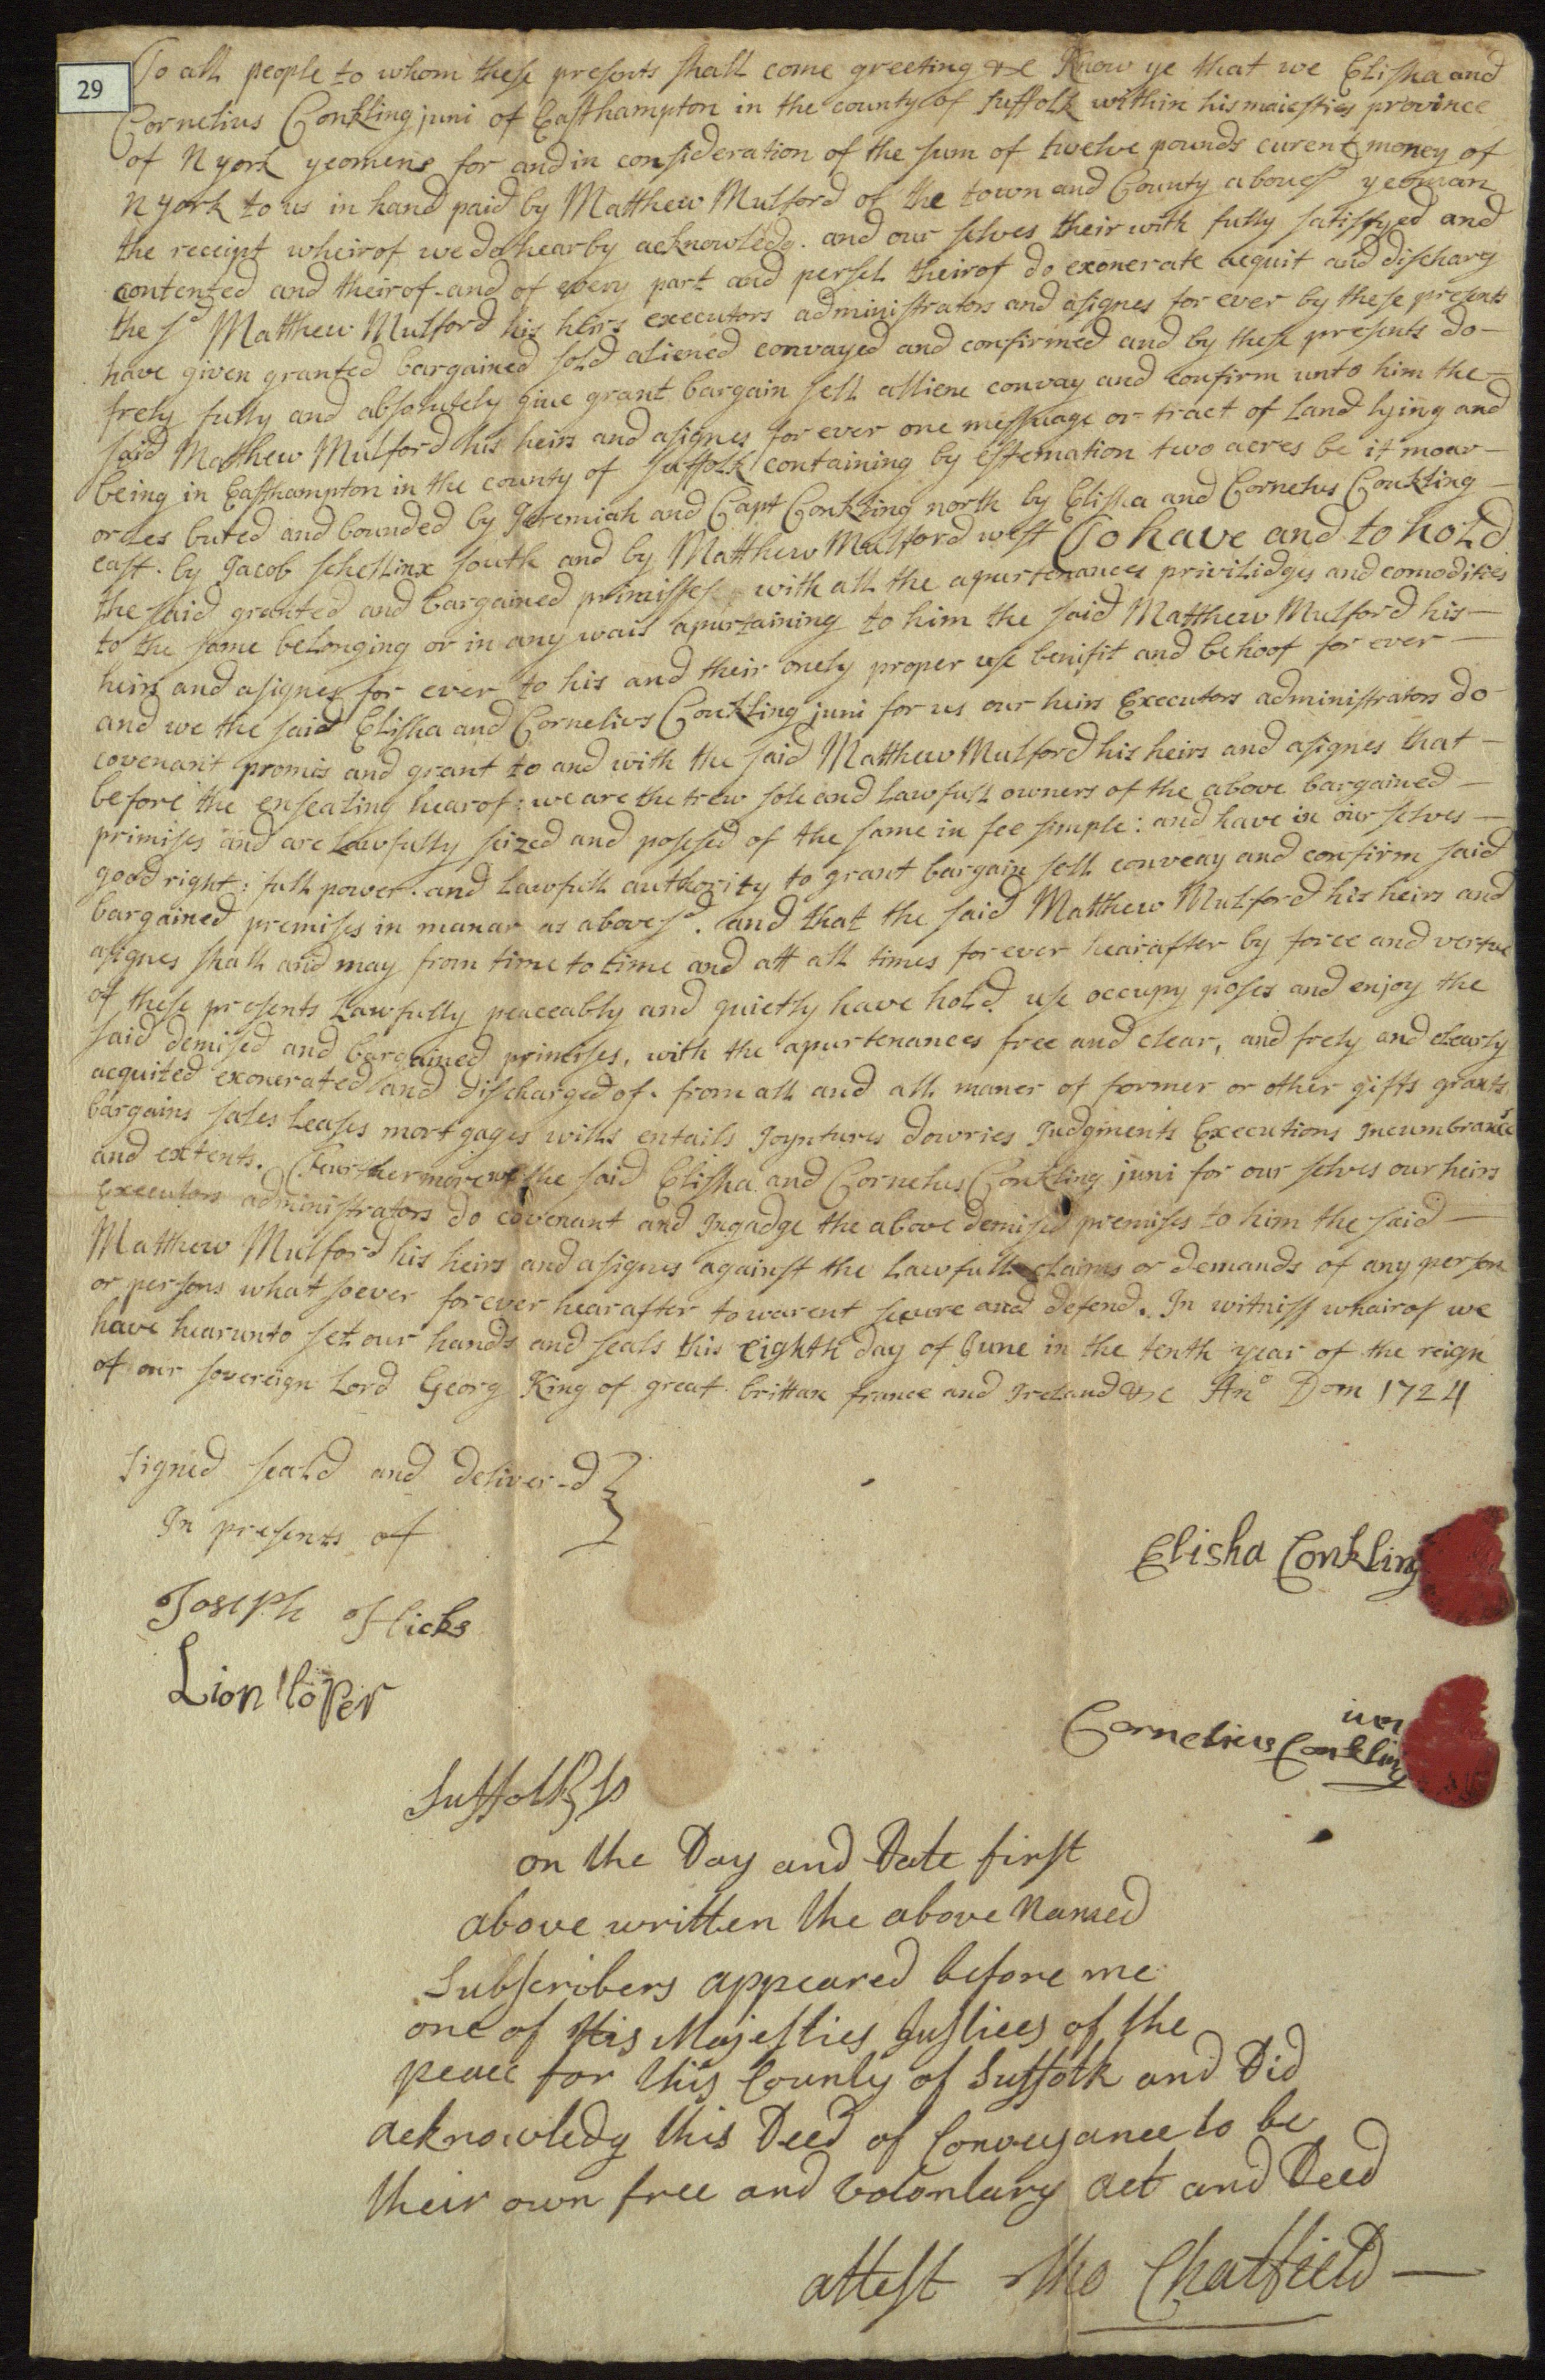 29
To all people to whom these presents shall come greeting &c Know ye that we Elisha and
Cornelius Conkling juni of Easthampton in the county of Suffolk within his maiesties province
of N york yeomens for and in consideration of the sum of twelve pounds curent money of
N york to us in hand paid by Matthew Mulford of the town and County aboves^d yeoman
the receipt wheirof we do hearby acknowledg. and our selves their with fully satisfyed and
contented and theirof and of every part and persel theirof do exonerate acquit and discharg
the s^d Matthew Mulford his heirs executors administrators and asignes for ever by these presents
have given granted bargained sold aliened convayed and confirmed and by these presents do —
frely fully and absolutely give grant bargain sell alliene convay and confirm unto him the —
said Matthew Mulford his heirs and asignes for ever one messuage or tract of Land lying and
being in Easthampton in the county of Suffolk containing by estemation two acres be it moar —
or les buted and bounded by Jeremiah and Capt Conkling north by Elisha and Cornelus Conkling —
east. by Jacob schellinx south and by Matthew Mulford west To have and to hold
the said granted and bargained primisses with all the apurtenances privilidges and comodities
to the same belonging or in any wais apurtaining to him the said Matthew Mulford his —
heirs and asignes for ever to his and their onely proper use benifit and behoof for ever —
and we the said Elisha and Cornelius Conkling juni for us our heirs Executors administrators do
covenant promis and grant to and with the said Matthew Mulford his heirs and asignes that —
before the ensealing hearof: we are the trew sole and Lawfull owners of the above bargained —
primises and are Lawfully seized and posesed of the same in fee simple: and have in our selves —
good right: full power. and Lawfull authority to grant bargain sell conveay and confirm said
bargained premises in manar as aboves^d. and that the said Matthew Mulford his heirs and
asignes shall and may from time to time and att all times for ever hearafter by force and vertue
of these presents Lawfully peaceably and quietly have hold. use occupy poses and enjoy the
said demised and bargained primises, with the apurtenances free and clear, and frely and clearly
acquited exonerated and discharged of. from all and all maner of former or other gifts grants
bargains sales Leases mortgages wills entails Joyntures dowries Judgments Executions Incumbrances
and extents. Furthermore we the said Elisha and Cornelus Conkling juni for our selves our heirs
Executors administrators do covenant and Ingadge the above demised premises to him the said —
Matthew Mulford his heirs and asignes against the Lawfull claims or demands of any person
or persons whatsoever forever hearafter to warent secure and defend. In witniss whairof we
have hearunto set our hands and seals this eighth day of June in the tenth year of the reign
of our sovereign Lord Georg King of great brittan france and Ireland &c An^o Dom 1724
signed seald and deliver-d }
In presents of
Elisha Conkling
Joseph Hicks
Lion loper
iun
Cornelius Conkling
Suffolk ss
on the Day and Date first
above written the above Named
Subscribers appeared before me
one of His Majesties Justices of the
peace for this County of Suffolk and Did
acknowledg this Deed of Conveyance to be
their own free and Volontary act and Deed
attest Tho Chatfield —